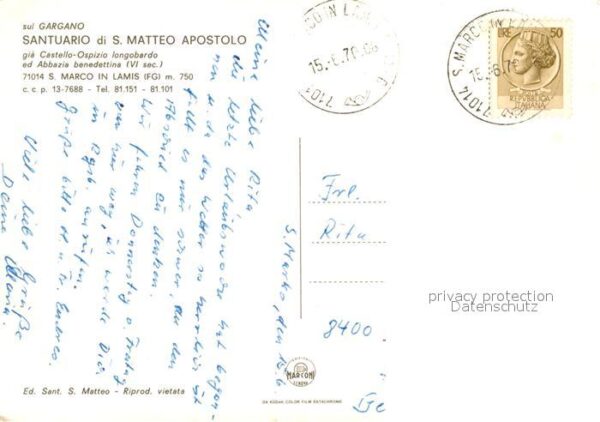 sul GARGANO
SANTUARIO di S. MATTEO APOSTOLO
già Castello-Ospizio longobardo
ed Abbazia benedettina (VI sec.)
71014 S. MARCO IN LAMIS (FG) m. 750
c. c. p. 13-7688 - Tel. 81.151 - 81.101
S. Marko, den 15.6.
Meine liebe Rita,
die letzte Urlaubswoche hat begon-
nen u. da das Wetter so herrlich ist
fällt es mir schwer, an den
Abschied zu denken.
Wir fahren Donnerstag o. Freitag
von hier weg, ich werde Dich
in Rgsb. anrufen.
Grüße bitte
Viele liebe Grüße
Deine
Frl.
Rita
8400
S. MARCO IN LAMIS
15.-6.71
71014
LIRE 50
REPUBBLICA
ITALIANA
privacy protection
Datenschutz
MARCONI
GENOVA
Ed. Sant. S. Matteo - Riprod. vietata
DA KODAK COLOR FILM EKTACHROME